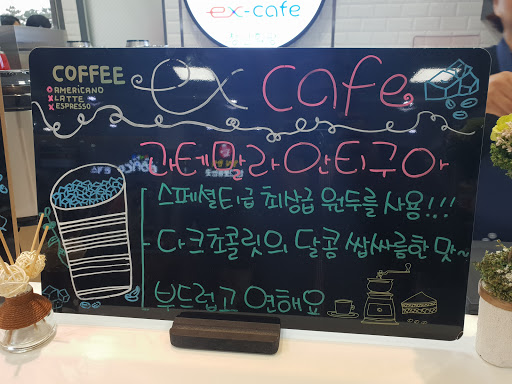 ex-cafe
COFFEE
O AMERICANO
X LATTE
X ESPRESSO
ex cafe
과테말라 안티구아
스페셜티급 최상급 원두를 사용!!!
다크초콜릿의 달콤 쌉싸름한 맛~
부드럽고 연해요